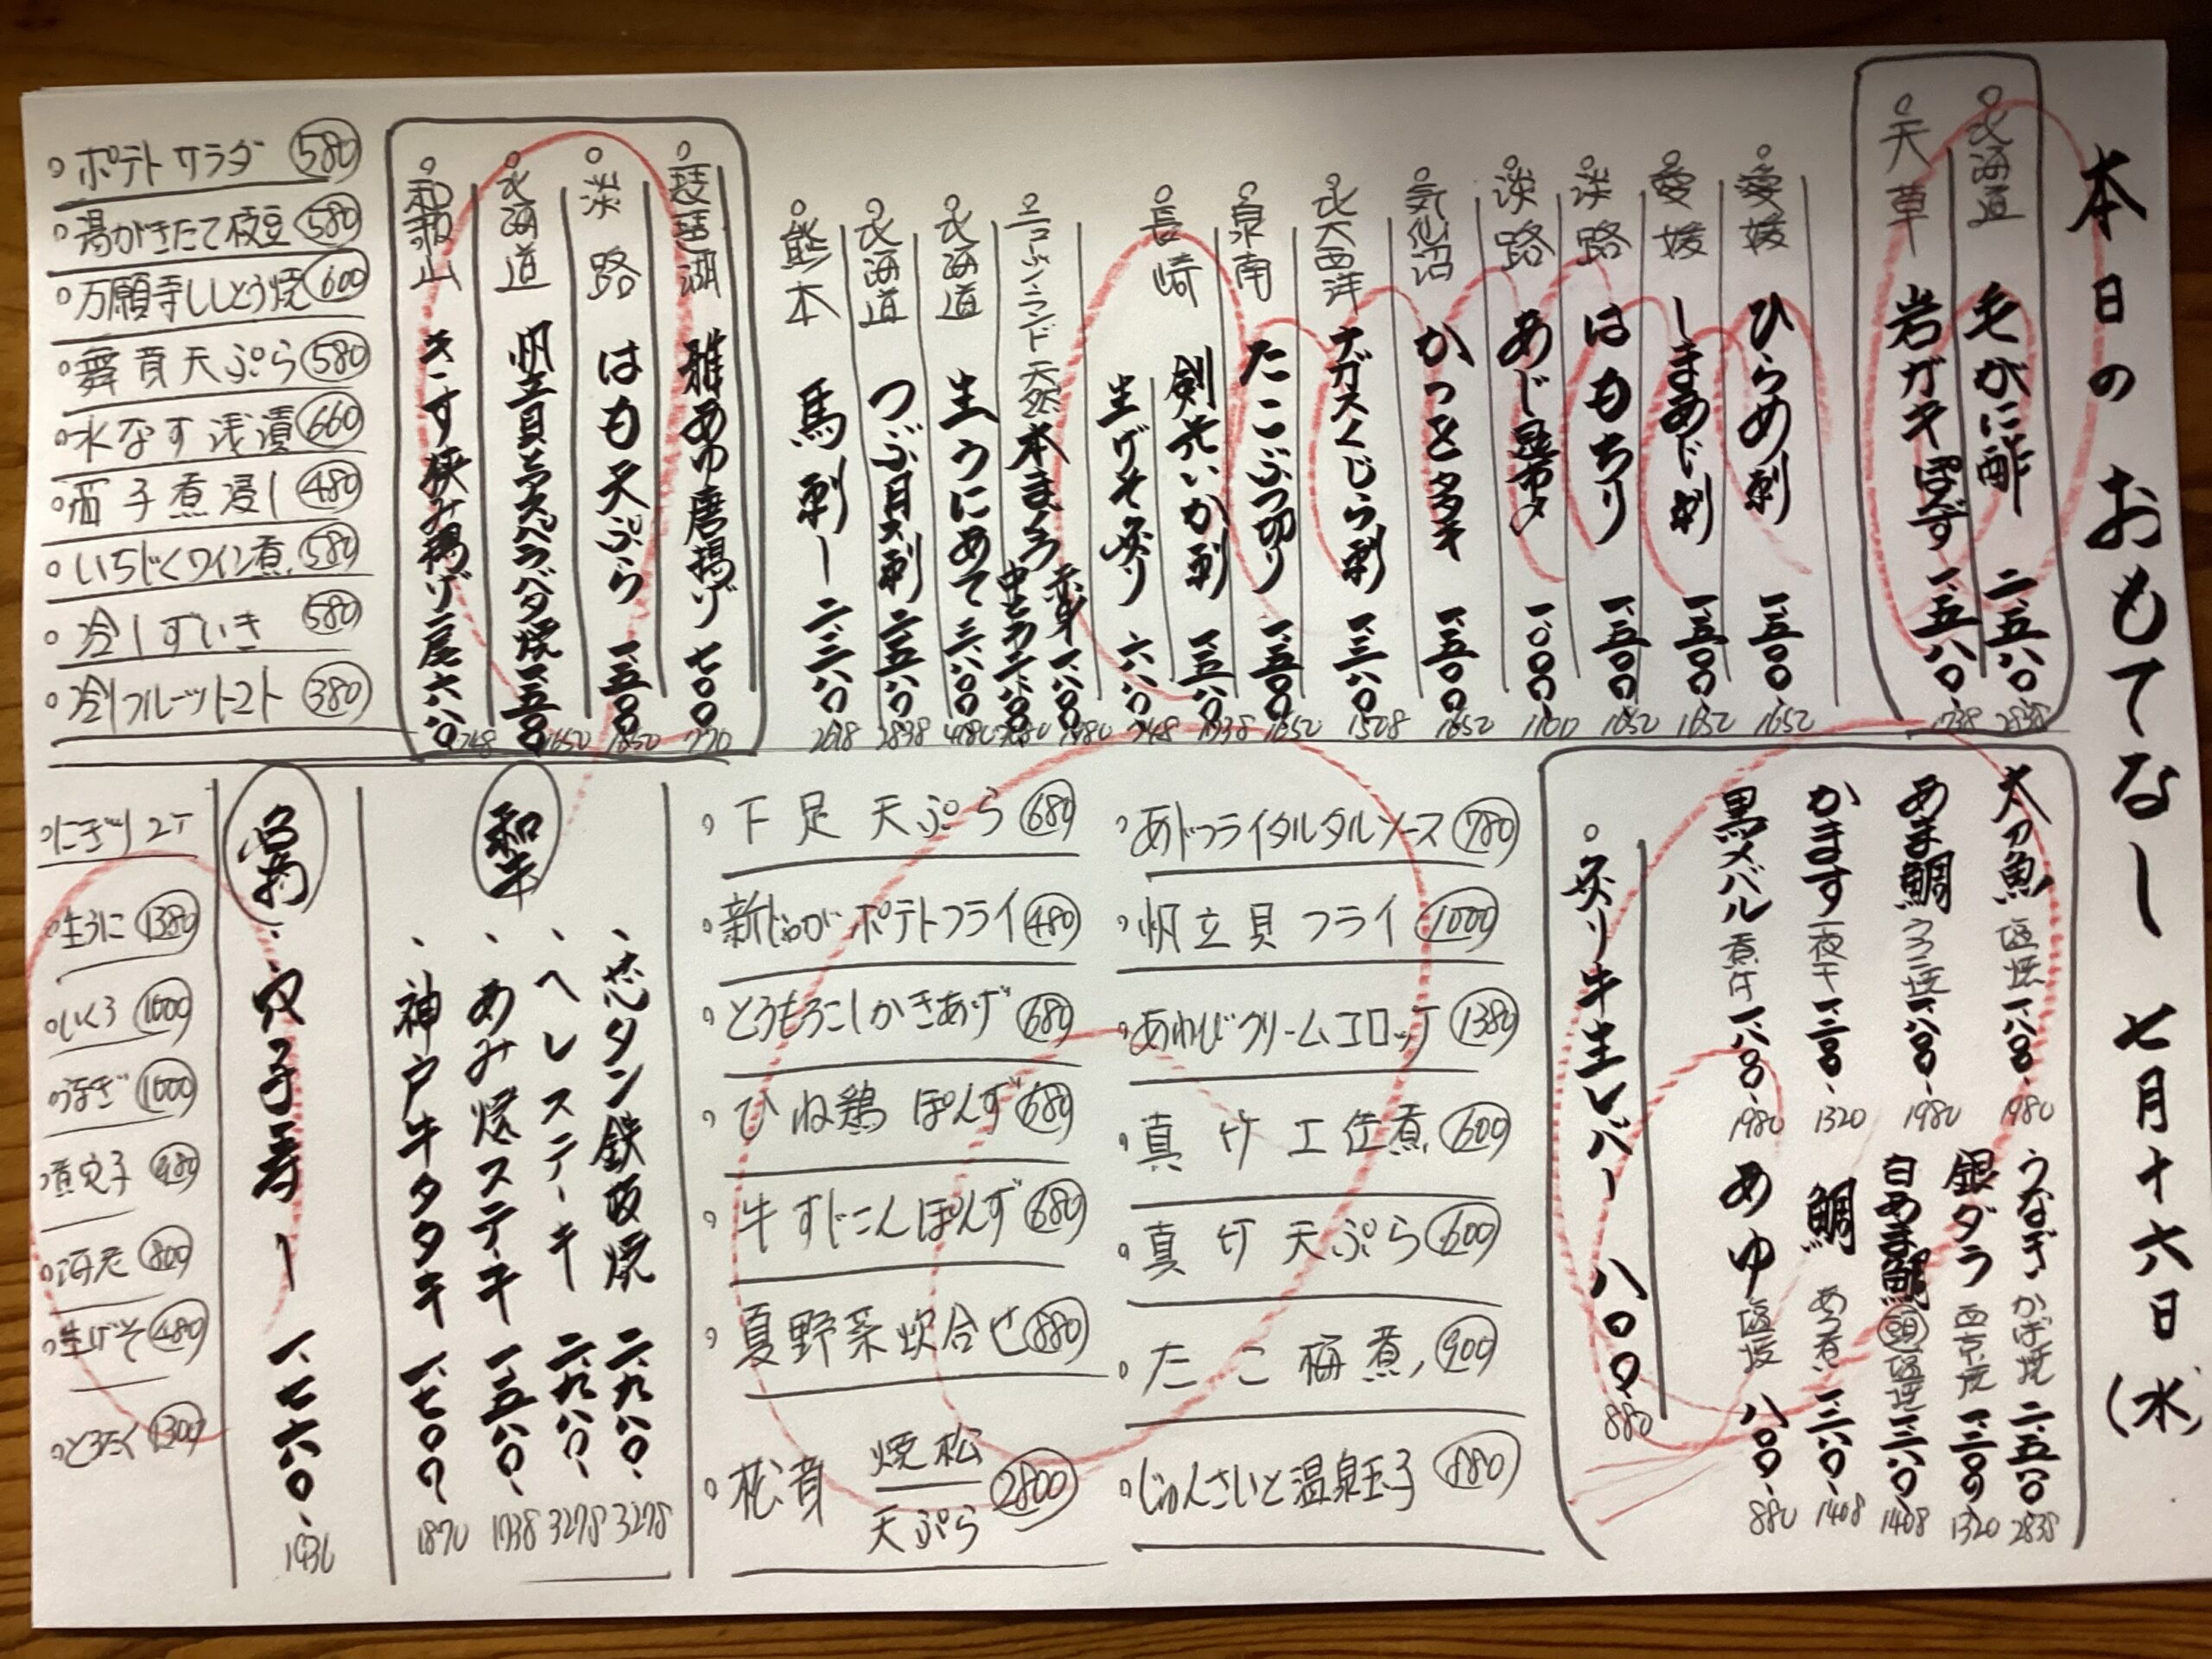 本日のおもてなし 七月十六日(水)
北海道 毛がに酢 二、五八〇 2838
天草 岩ガキぽんず 一、五八〇 1738
愛媛 ひらめ刺 一、五〇〇 1650
愛媛 しまあじ刺 一、五〇〇 1650
淡路 はもちり 一、五〇〇 1650
淡路 あじ昆布〆 一、〇〇〇 1100
気仙沼 かつをタタキ 一、五〇〇 1650
北大西洋 ナガスくじら刺 一、三八〇 1508
泉南 たこぶつ切り 一、五〇〇 1650
長崎 剣先いか刺 一、五八〇 1738
生げそ炙り 六八〇 748
ニュージーランド 天然本まぐろ 赤身 一、八〇〇 1980
中とろ 二、八〇〇
北海道 生うにあて 三、八〇〇 4180
北海道 つぶ貝刺 二、五八〇 2838
熊本 馬刺し 二、三八〇 2618
琵琶湖 稚あゆ唐揚げ 七〇〇 770
淡路 はも天ぷら 一、五〇〇 1650
北海道 帆立貝 バタ焼 一、五〇〇 1650
和歌山 きす挟み揚げ 二尾 六八〇 748
ポテトサラダ 580
湯がきたて枝豆 580
万願寺ししとう焼 600
舞茸天ぷら 580
水なす浅漬 660
茄子煮浸し 480
いちじくワイン煮 580
冷しずいき 580
冷しフルーツトマト 380
太刀魚 塩焼 一、八〇〇 1980
あま鯛 うろこ焼 一、八〇〇 1980
かます 一夜干 一、二〇〇 1320
黒メバル 煮付 一、八〇〇 1980
うなぎ かば焼 二、五八〇 2838
銀ダラ 西京焼 一、二〇〇 1320
白あま鯛 頭 塩焼 一、二八〇 1408
鯛 あら煮 一、二八〇 1408
あゆ 塩焼 八〇〇 880
炙り牛生レバー 八〇〇 880
あじフライタルタルソース 780
帆立貝フライ 1000
あわびクリームコロッケ 1380
真竹土佐煮 600
真竹天ぷら 600
たこ梅煮 900
じゅんさいと温泉玉子 880
下足天ぷら 680
新じゃがポテトフライ 480
とうもろこしかきあげ 680
ひね鶏ぽんず 680
牛すじこんぽんず 680
夏野菜炊合せ 880
松茸 焼松 天ぷら 2800
和牛
芯タン鉄板焼 二、九八〇 3278
ヘレステーキ 二、九八〇 3278
あみ焼ステーキ 一、五八〇 1738
神戸牛タタキ 一、七〇〇 1870
名物
穴子寿し 一、七六〇 1936
にぎり 2ケ
生うに 1380
いくら 1000
うなぎ 1000
煮穴子 980
海老 800
生げそ 480
とろたく 1300